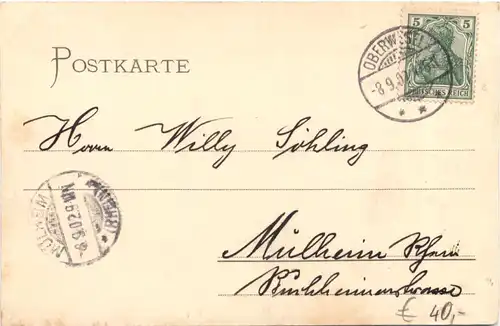 5 5
DEUTSCHES REICH
OBERWESEL
-8.9.02
POSTKARTE
Herrn Willy Söhling
(RHEIN)
8.9.02 9-10N
MÜLHEIM
Mülheim Rhein
Buchheimerstrasse
€ 40,-